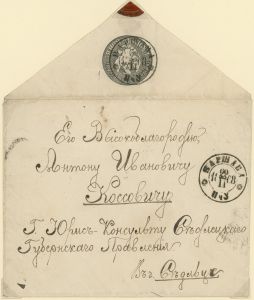 Его Высокоблагородію,
Антону Ивановичу
Коссовичу
Г. Юрисъ-Консульту Сѣдлецкаго
Губернскаго Правленія
Въ Сѣдльцѣ
ВАРШАВА